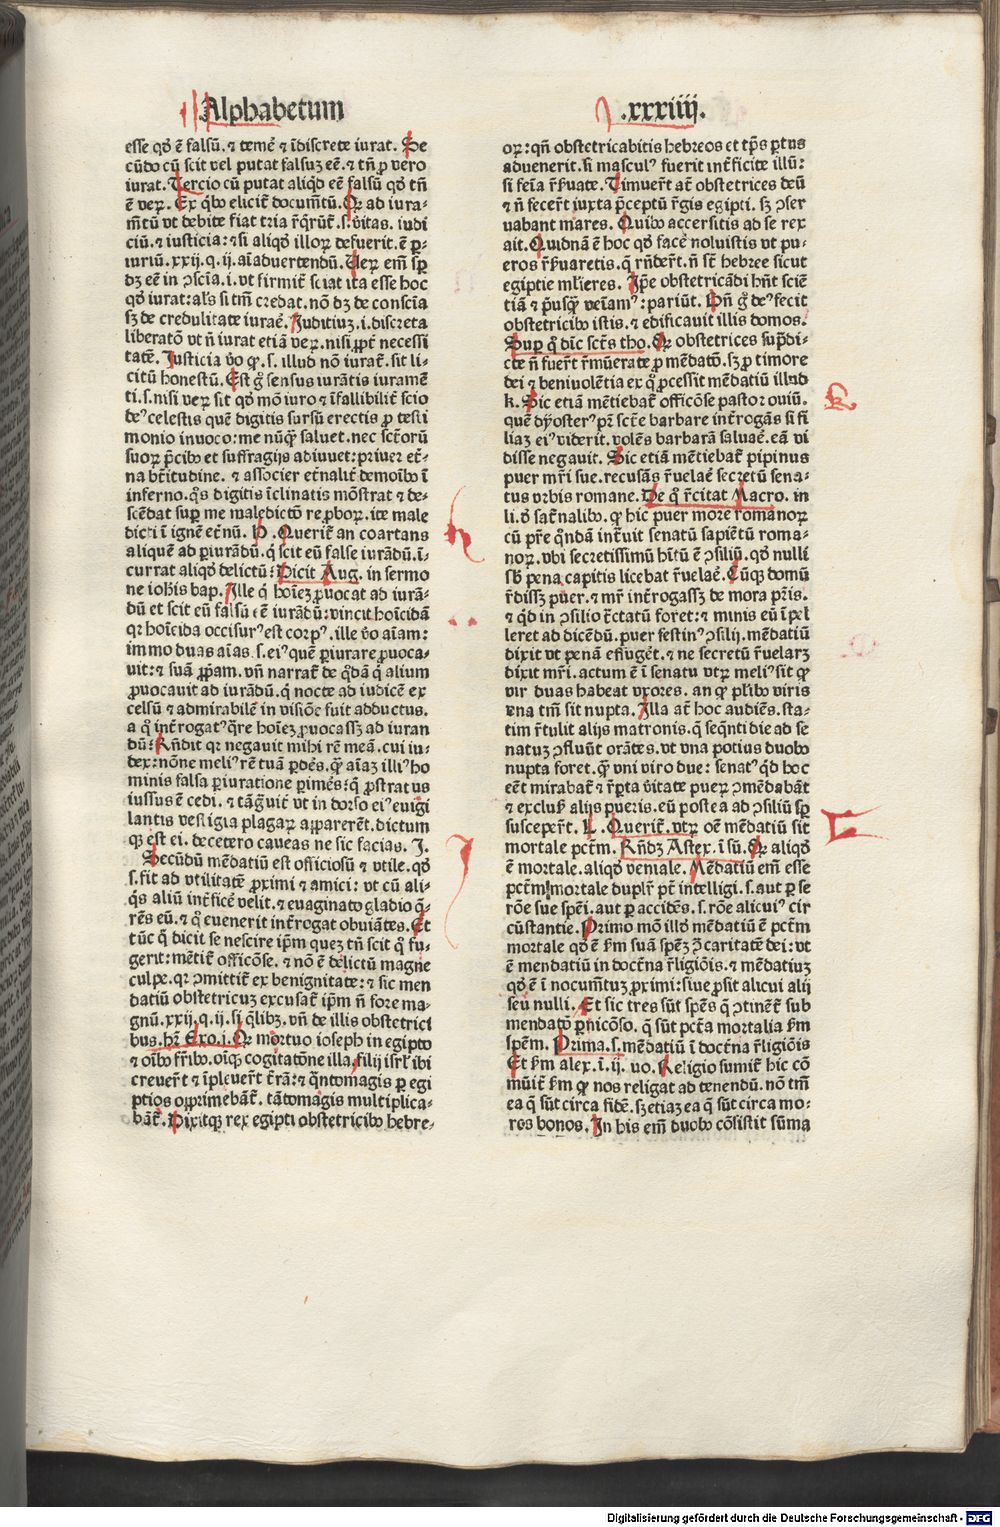 Alphabetum
.xxxiiij.
esse qd' ē falsū. ⁊ temē ⁊ īdiscrete iurat. Se
cūdo cū scit vel putat falsuꝫ eē. ⁊ tn̄ ꝓ vero
iurat. Tercio cū putat aliqd eē falsū qd' tn̄
ē veꝝ. Ex qͦ elicit̄ documētū. Qꝛ ad iura-
mētū vt debite fiat tria rēqrūt̄. s. v̄itas. iudi
ciū. ⁊ iusticia: ⁊ si aliqd' illoꝝ defuerit. ē ꝑ-
iuriū. xxij. q. ij. aīaduertendū. Ueꝝ em̄ sꝑ
dꝫ eē in ꝯscīa. i. vt firmit̄ sciat ita esse hoc
qd' iurat: als si tm̄ credat. nō dꝫ de conscīa
sꝫ de credulitate iurae. Juditiuꝫ. i. discreta
liberatō vt nō iurat etiā veꝝ. nisi ꝓpt̄ necessi
tatē. Justicia v̄o ꝙ. s. illud nō iurat̄. sit li-
citū honestū. Est gͦ sensus iurātis iuramē
ti. s. nisi veꝝ sit qd' mō iuro ⁊ īfallibilit̄ scio
deꝰ celestis quē digitis sursū erectis ꝓ testi
monio inuoco: me nūqꝫ saluet. nec sctōrū
suoꝝ p̄cibꝰ et suffragijs adiuuet: priuer et̄-
na btītudine. ⁊ associer et̄nalit̄ demoībꝰ ī
inferno. qd's digitis īclinatis mōstrat ⁊ de-
scēdat suꝑ me maledictō reꝓboꝝ. ite male
dicti ī ignē et̄nū. H. Querit̄ an coartans
aliquē ad ꝑiurādū. q̄ scit eū false iurādū. ī-
currat aliqd' delictū: Dicit Aug. in sermo
ne iohīs bap. Ille q̄ hoīeꝫ ꝓuocat ad iurā-
dū et scit eū falsū eē iurādū: vincit hoīcidā
qꝛ hoīcida occisurꝰ est corpꝰ. ille v̄o aīam:
immo duas aīas. s. eiꝰ quē ꝑiurare ꝓuoca-
uit: ⁊ suā ꝓpam. vn̄ narrat̄ de qͦdā q̄ alium
ꝓuocauit ad iurādū. q̄ nocte ad iudicē ex
celsū ⁊ admirabilē in visiōe fuit adductus.
a qͦ int̄rogatꝰ qre hoīeꝫ ꝓuocassꝫ ad iuran
dū: Rn̄dit qꝛ negauit mihi rē meā. cui iu-
dex: nōne meliꝰ rē tuā ꝑdes. qꝫ aīaꝫ illiꝰ ho
minis falsa ꝑiuratione ꝑimes: q̄ ꝓstratus
iussus ē cedi. ⁊ tāgͣuit̄ vt in dorso eiꝰ euigi
lantis vestigia plagaꝝ apparerēt. dictum
qꝫ est ei. decetero caueas ne sic facias. J.
Secūdū mēdatiū est officiosū ⁊ vtile. qd'
s. fit ad vtilitatē ꝓximi ⁊ amici: vt cū ali-
q̄s aliū int̄ficē velit. ⁊ euaginato gladio q̄-
rēs eū. ⁊ qͦ euenerit int̄rogat obuiātes. Et
tūc q̄ dicit se nescire ip̄m queꝫ tn̄ scit qͦ fu-
gerit: mētit̄ officōse. ⁊ nō ē delictū magne
culpe. qꝛ ꝯmittit̄ ex benignitate: ⁊ sic men
datiū obstetricuꝫ excusat̄ ip̄m nō fore ma-
gnū. xxij. q. ij. si qͥlibꝫ. vn̄ de illis obstetrici
bus. hꝛ Exo. i. Qꝛ mortuo ioseph in egipto
⁊ oībꝰ fr̄ibꝰ. oīqꝫ cogitatōne illa. filij isrl' ibi
creuer̄t ⁊ īpleuer̄t t̄rā: ⁊ qͣntomagis ꝑ egi
ptios opprimebāt̄. tātomagis multiplica-
bāt̄. Dixitqꝫ rex egipti obstetricibꝰ hebre-
oꝝ: qn̄ obstetricabitis hebreos et tp̄s ꝑtus
aduenerit. si masculꝰ fuerit int̄ficite illū:
si feīa r̄ẜuate. Timuer̄t at̄ obstetrices deū
⁊ nō fecer̄t iuxta p̄ceptū r̄gis egipti. sꝫ ꝯser
uabant mares. Quibꝰ accersitis ad se rex
ait. Quidnā ē hoc qd' facē noluistis vt pu-
eros r̄ẜuaretis. q̄ rn̄der̄t. nō st̄ hebree sicut
egiptie mlieres. Ip̄e obstetricādi hn̄t sciē
tiā ⁊ p̄usqꝫ veīamꝰ: pariūt. Un̄ gͦ deꝰ fecit
obstetricibꝰ istis. ⁊ edificauit illis domos.
Suꝑ qͦ dic̄ sctūs tho. Qꝛ obstetrices sup̄di-
cte nō fuer̄t r̄mūerate ꝓ mēdatō. sꝫ ꝓ timore
dei ⁊ beniuolētia ex qͦ ꝓcessit mēdatiū illud
k. Sic etiā mētiebat̄ officōse pastor ouiū.
quē dyosterꝰ pr̄ sctē barbare int̄rogās si fi
liaꝫ eiꝰ viderit. volēs barbarā saluae. eā vi
disse negauit. Sic etiā mētiebat̄ pipinus
puer mr̄i sue. recusās r̄uelae secretū sena-
tus vrbis romane. De qͦ r̄citat Macro. in
li. d' sat̄nalibꝰ. ꝙ hic puer more romanoꝝ
cū pr̄e qͦndā int̄uit senatū sapiētū roma-
noꝝ. vbi secretissimū hītū ē ꝯsiliū. qd' nulli
sb̄ pena capitis licebat r̄uelae. Cūqꝫ domū
r̄dissꝫ puer. ⁊ mr̄ int̄rogassꝫ de mora pr̄is.
⁊ qd in ꝯsilio t̄ctatū foret: ⁊ minis eū īpel
leret ad dicēdū. puer festinꝰ ꝯsilij. mēdatiū
dixit vt penā effuget̄. ⁊ ne secretū r̄uelaꝝ
dixit mr̄i. actum ē ī senatu vtꝝ meliꝰ sit ꝙ
vir duas habeat vxores. an ꝙ pl'ibꝰ viris
vna tm̄ sit nupta. Illa at̄ hoc audiēs. sta-
tim r̄tulit alijs matronis. q̄ seqn̄ti die ad se
natuꝫ ꝯfluūt orātes. vt vna potius duobꝰ
nupta foret. qꝫ vni viro due: senatꝰ qd hoc
eēt mirabat̄ ⁊ r̄ꝑta v̄itate pueꝝ ꝯmēdabāt
⁊ exclusꝭ alijs pueris. eū postea ad ꝯsiliū sꝑ
susceper̄t. L. Querit̄. vtꝝ oē mēdatiū sit
mortale pctm̄. Rn̄dꝫ Astex. ī sū. Qꝛ aliqd'
ē mortale. aliqd' veniale. Mēdatiū em̄ esse
pctm̄ mortale duplr̄ pt̄ intelligi. s. aut ꝑ se
rōe sue spēi. aut ꝑ accidēs. s. rōe alicuiꝰ cir
cūstantie. Primo mō illd' mēdatiū ē pctm̄
mortale qd' ē ẜm suā spēꝫ ꝯ̄ caritatē dei: vt
ē mendatiū in doctn̄a r̄ligiōis. ⁊ mēdatiuꝫ
qd' ē ī nocumtuꝫ ꝓximi: siue ꝓsit alicui alij
seu nulli. Et sic tres sūt spēs q̄ ꝯtinēt̄ sub
mendatō ꝑnicōso. q̄ sūt pctā mortalia ẜm
spēm. Prima. s. mēdatiū ī doctn̄a r̄ligiōis
Et ẜm alex. i. ij. vo. Religio sumit̄ hic cō
mūit̄ ẜm ꝙ nos religat ad tenendū. nō tm̄
ea q̄ sūt circa fidē. sꝫ etiaꝫ ea q̄ sūt circa mo-
res bonos. In his em̄ duobꝰ cōsistit sūma
h
J
k
L
Digitalisierung gefördert durch die Deutsche Forschungsgemeinschaft - DFG